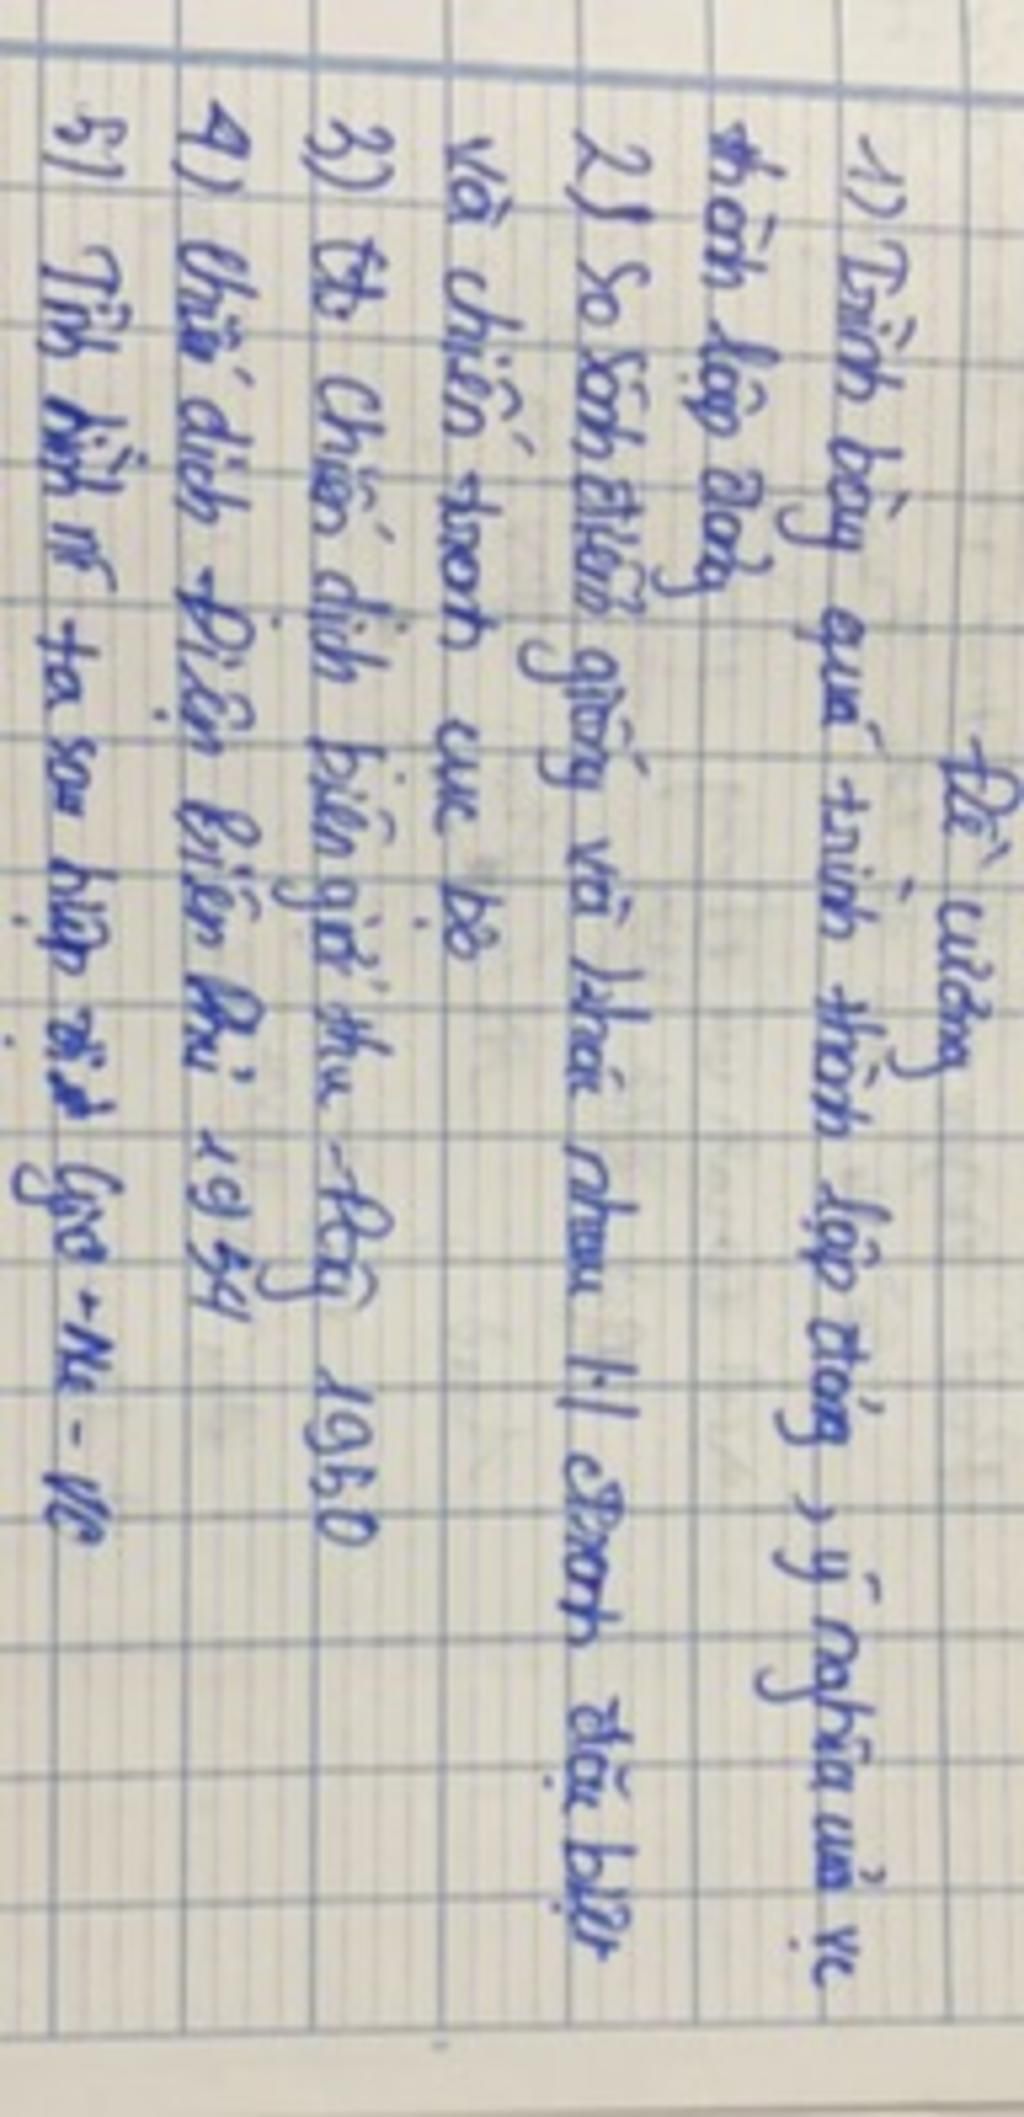 Đề cương
1) Trình bày quá trình thành lập đảng, ý nghĩa của vc
thành lập Đảng
2) So Sánh điểm giống và khác nhau chiến tranh đặc biệt
và chiến tranh cục bộ
3) chiến dịch biên giới thu - Đông 1950
4) chiến dịch Điện biên Phủ 1954
5) Tình hình nc ta sau hiệp định Giơ - Ne - Vơ